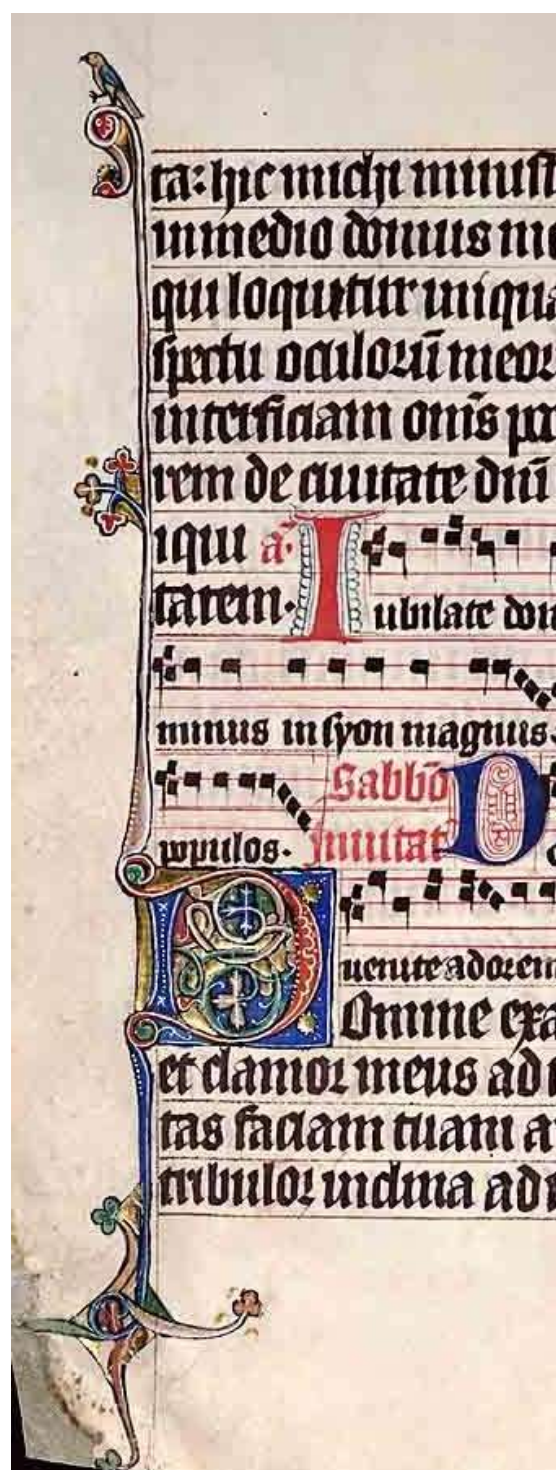 ta: hic michi minist
in medio domus me
qui loquitur iniqua
spectu oculorū meor
interficiam om̄s pec
rem de ciuitate dn̄i
iqui a᷎
tatem. Iubilate dom
minus in syon magnus.
Sabbō
populos. Inuitat D
uenite adorem
Domine exa
et clamor meus ad
tas faciam tuam a
tribulor inclina ad